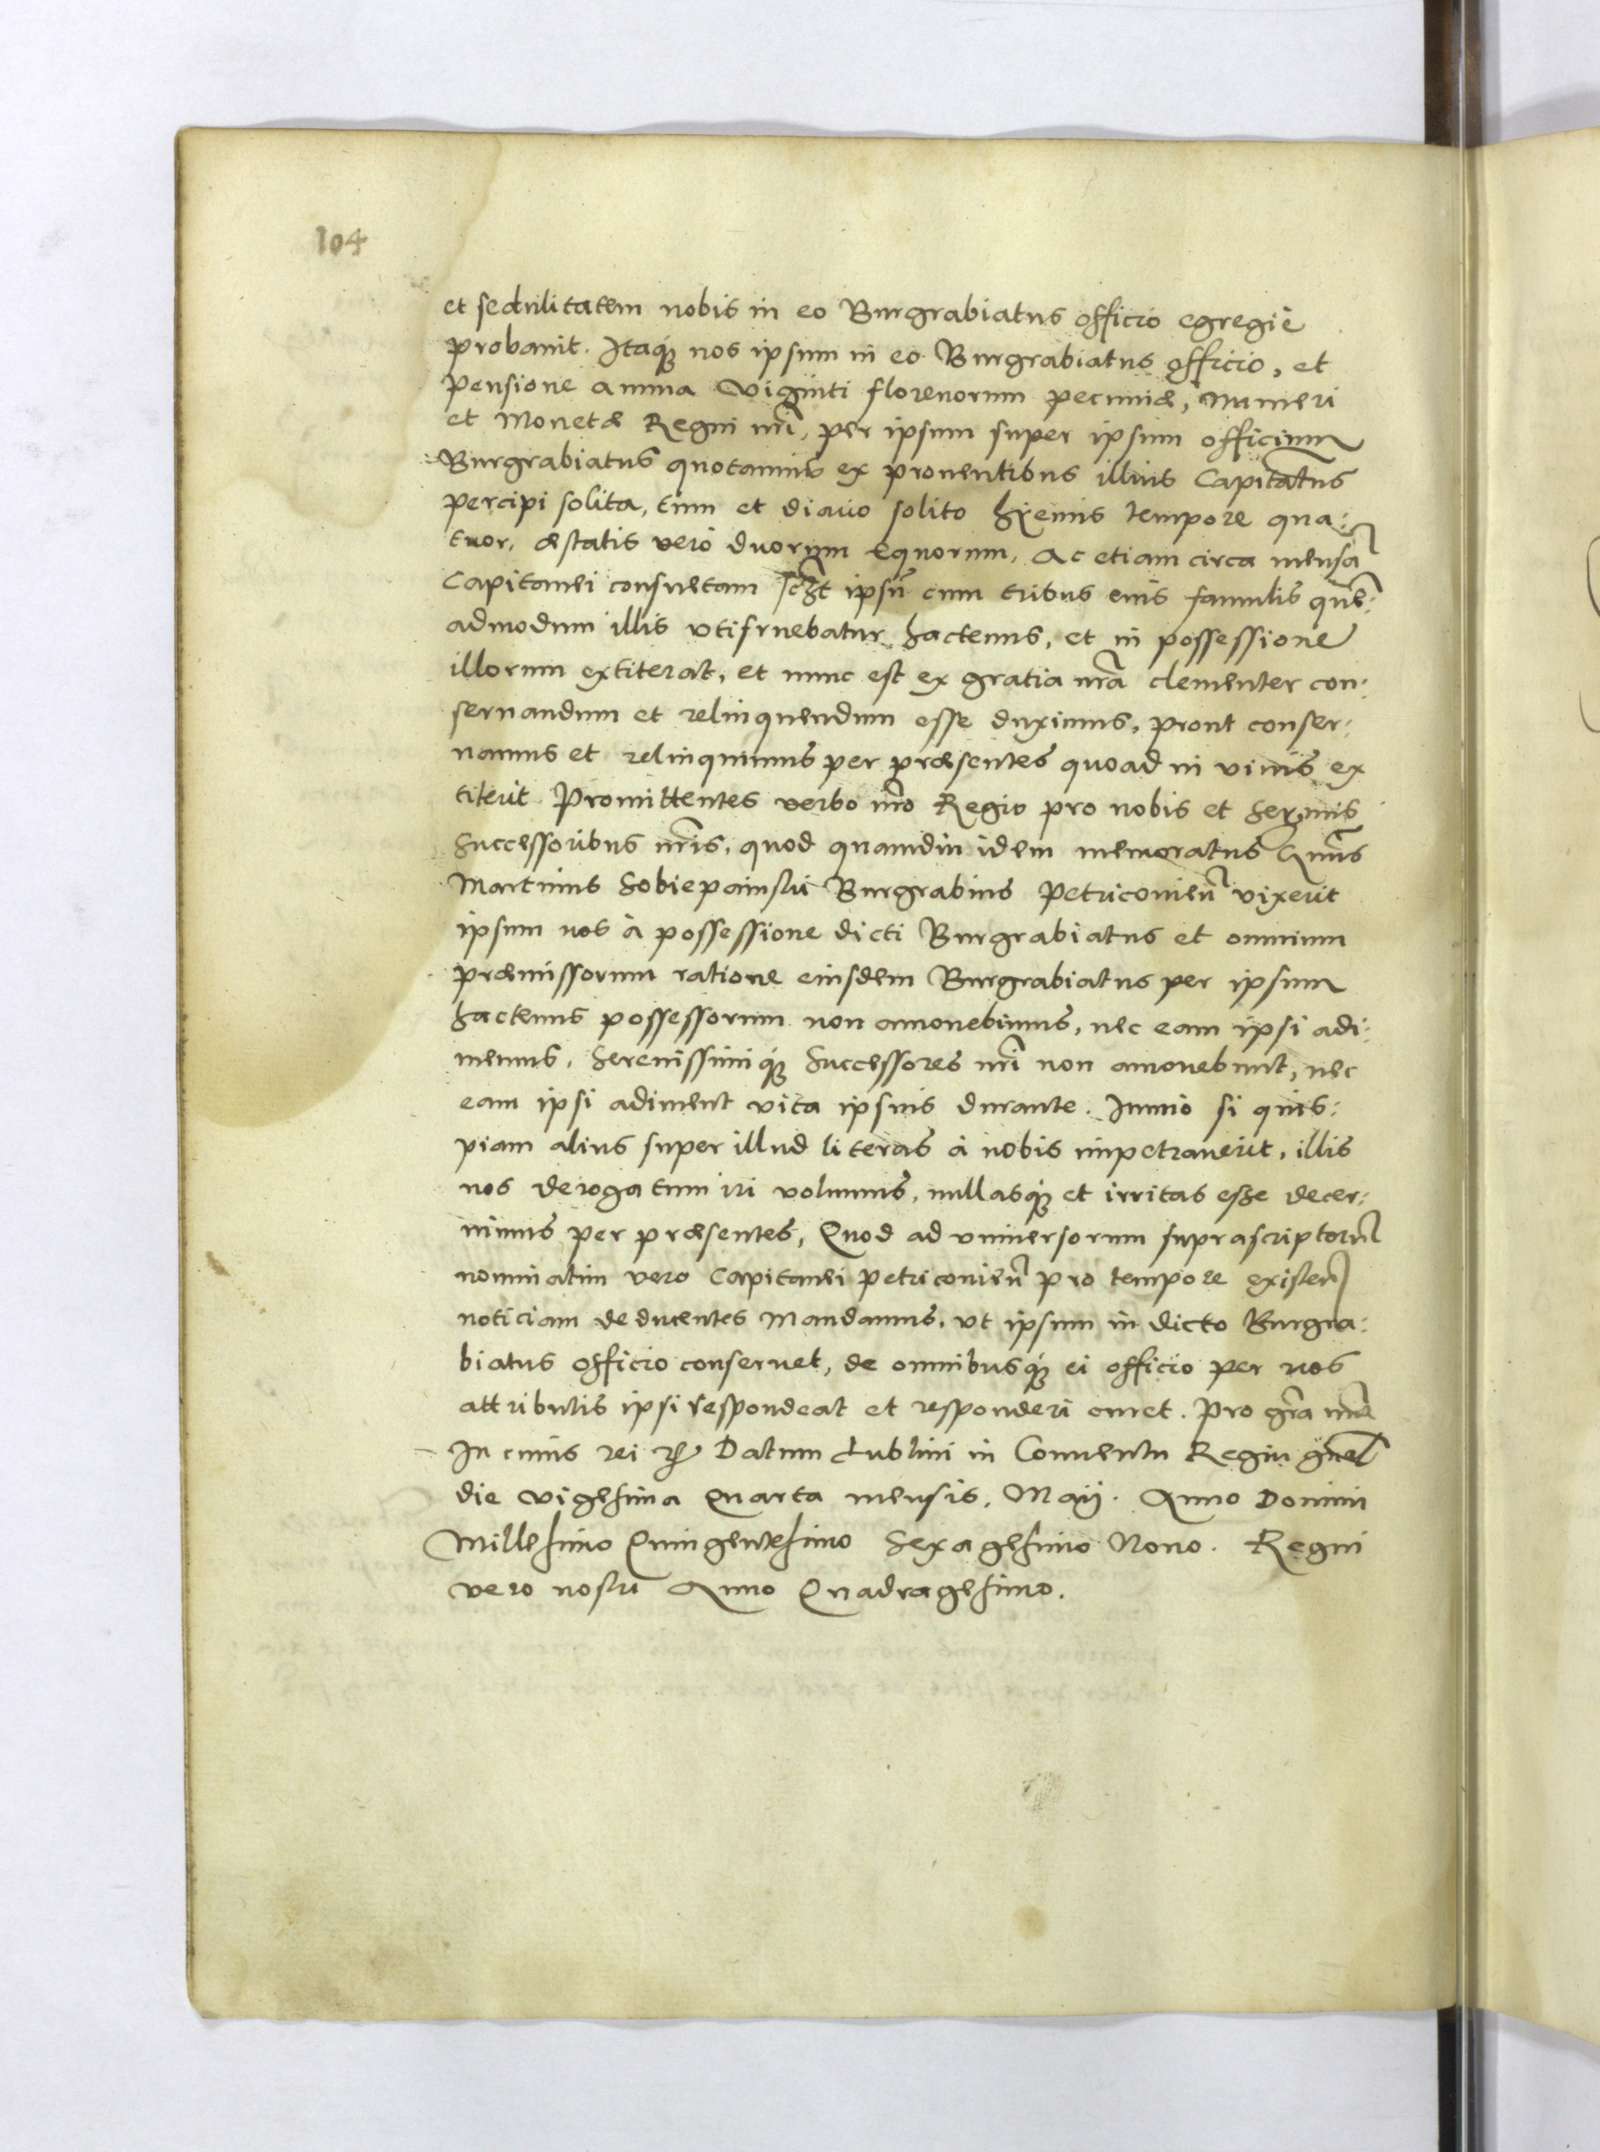 104
et sedulitatem nobis in eo Burgrabiatus officio egregiè
probauit. Itaq́ue nos ipsum in eo Burgrabiatus officio, et
pensione annua Viginti florenorum pecuniæ, numeri
et Monetæ Regni nr̃i, per ipsum super ipsum officium
Burgrabiatus quotannis ex prouentibus illius Capitatus
percipi solita, tum et diario solito hyemis tempore qua:
tuor, æstatis verò duorum Equorum, Ac etiam circa mensã
Capitanei consuetam ipsũ cum tribus eius famulis quẽ:
admodum illis vtifruebatur hactenus, et in possessione
illorum extiterat, et nunc est ex gratia nr̃a clementer con:
seruandum et relinquendum esse duximus, prout conser:
uamus et relinquimus per præsentes quoad in viuis ex
titerit. Promittentes verbo nr̃o Regio pro nobis et Ser̃mis
Successoribus nr̃is, quod quamdiu idem memoratus
Martinus Sobiepainski Burgrabius Petriconieñ vixerit
ipsum nos à possessione dicti Burgrabiatus et omnium
præmissorum ratione eiusdem Burgrabiatus per ipsum
hactenus possessorum non amouebimus, nec eam ipsi adi:
memus, Serenissimiq́ue Successores nr̃i non amouebunt, nec
eam ipsi adiment vita ipsius durante. Immò si quis:
piam alius super illud literas à nobis impetrauerit, illis
nos derogatum iri volumus, nullasq́ue et irritas esse decer:
nimus per præsentes, Quod ad vniuersorum suprascriptorũ
nominatim vero Capitanei Petriconieñ pro tempore existeñ
noticiam deducentes Mandamus, vt ipsum in dicto Burgra:
biatus officio conseruet, de omnibusq́ue ei officio per nos
attributis ipsi respondeat et responderi curet. Pro gr̃a nr̃a
In cuius rei Datum Lublini in Conuentu Regni gñal
die vigesima Quarta mensis, Maij. Anno Domini
Millesimo Quingentesimo Sexagesimo Nono. Regni
vero nostri Anno Quadragesimo.